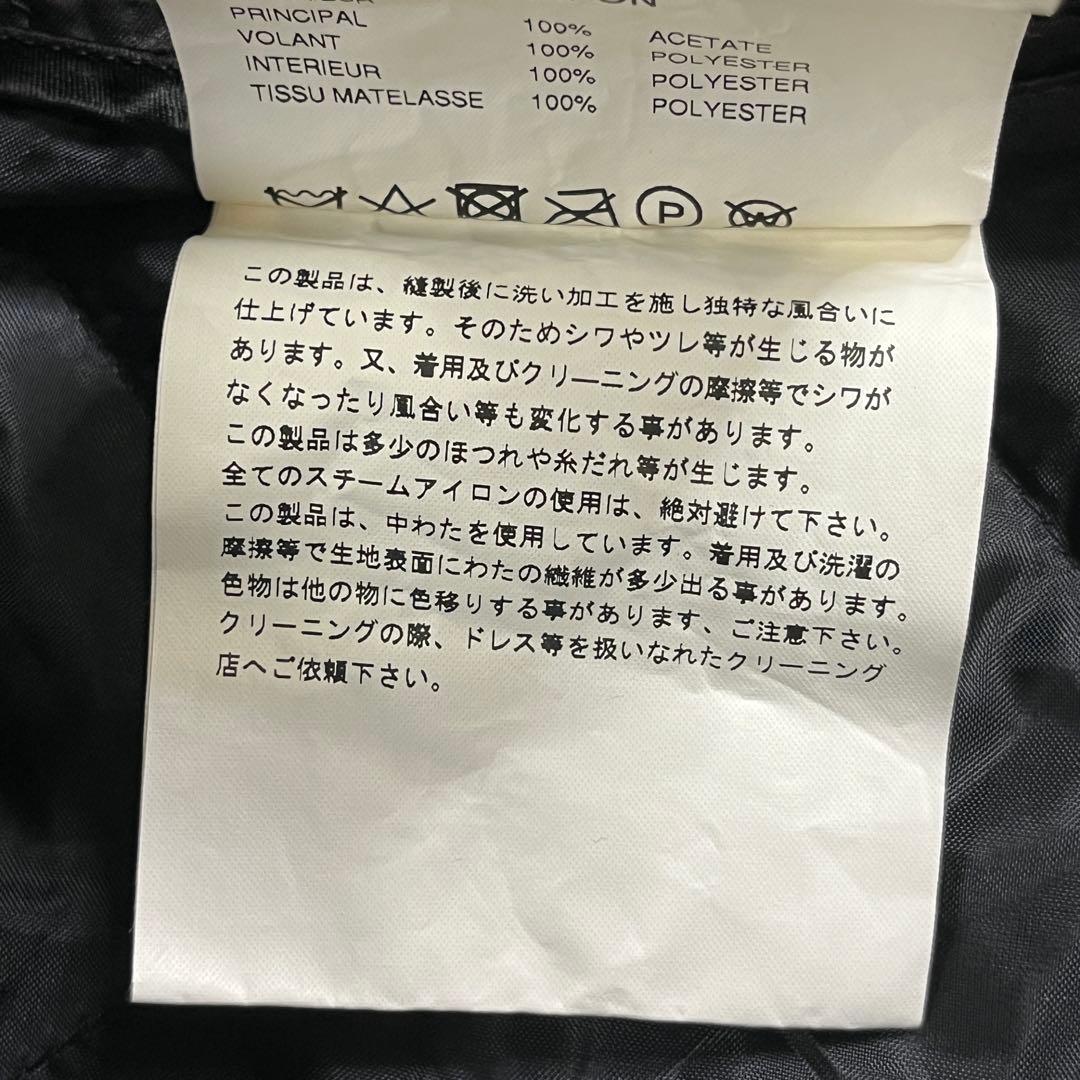 PRINCIPAL 100% ACETATE
VOLANT 100% POLYESTER
INTERIEUR 100% POLYESTER
TISSU MATELASSE 100% POLYESTER
P W
この製品は、縫製後に洗い加工を施し独特な風合いに
仕上げています。そのためシワやツレ等が生じる物が
あります。又、着用及びクリーニングの摩擦等でシワが
なくなったり風合い等も変化する事があります。
この製品は多少のほつれや糸だれ等が生じます。
全てのスチームアイロンの使用は、絶対避けて下さい。
この製品は、中わたを使用しています。着用及び洗濯の
摩擦等で生地表面にわたの繊維が多少出る事があります。
色物は他の物に色移りする事があります、ご注意下さい。
クリーニングの際、ドレス等を扱いなれたクリーニング
店へご依頼下さい。